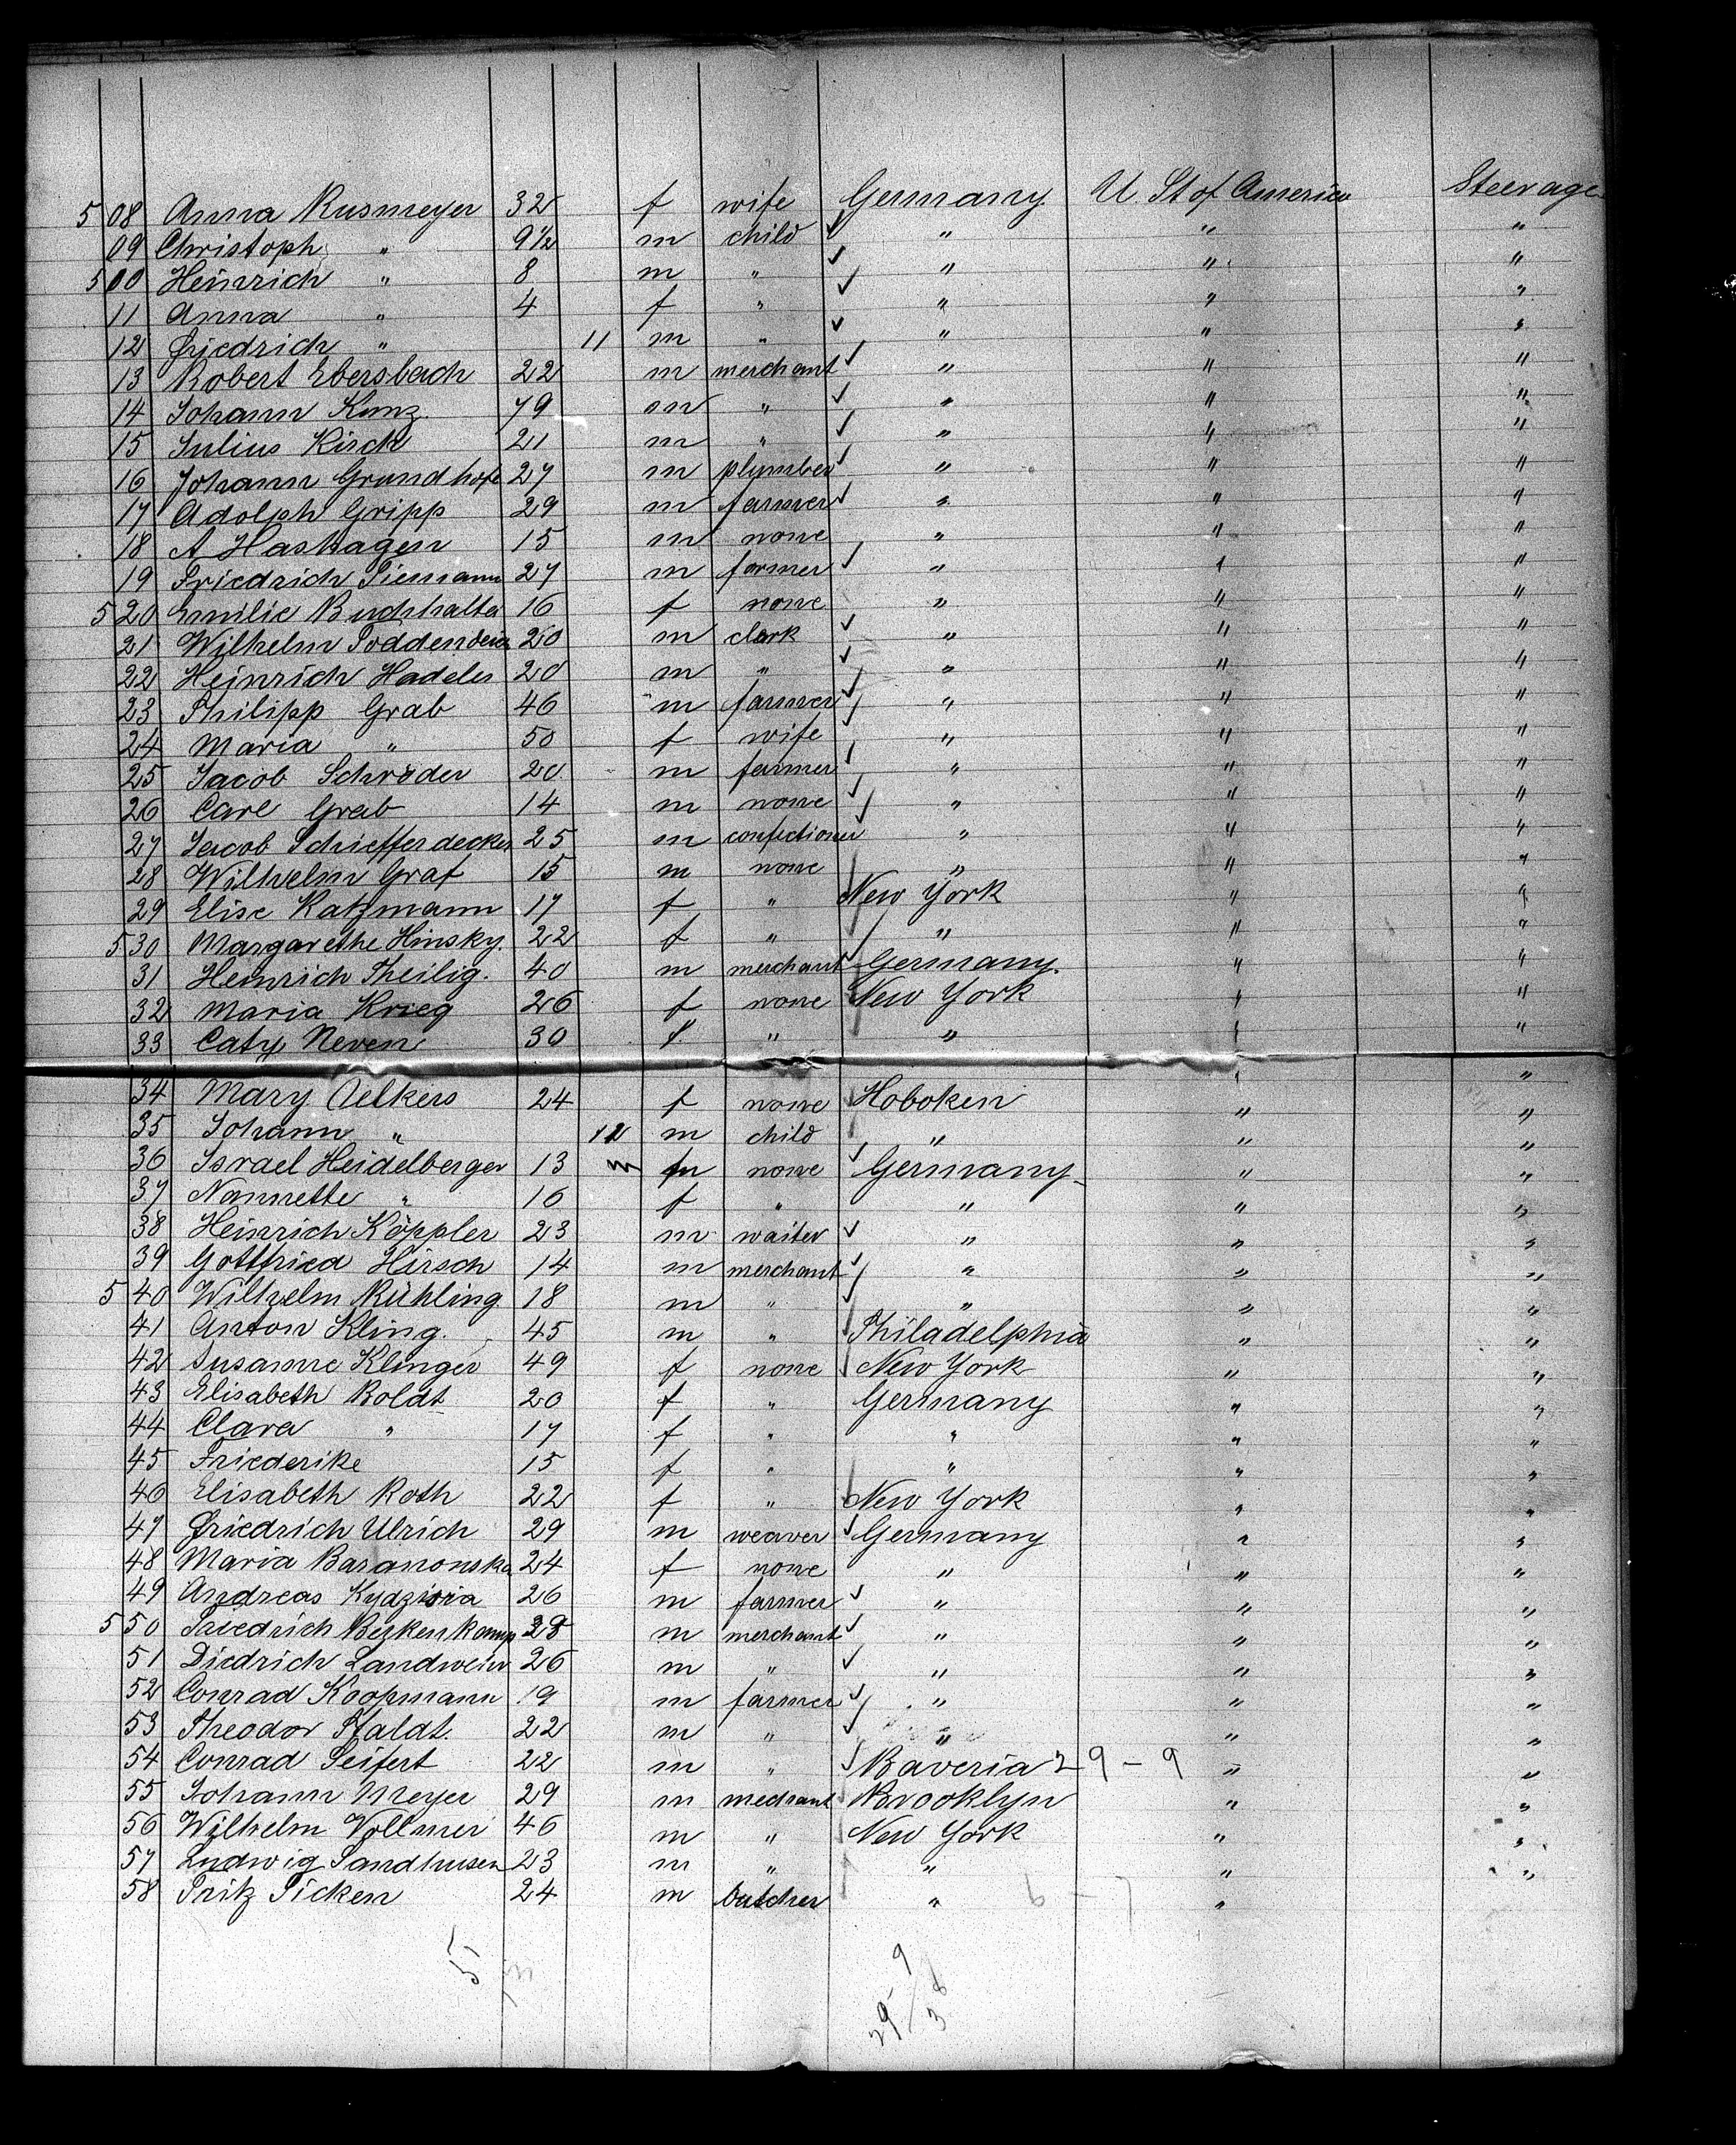 508 Anna Rusmeyer 32 f wife Germany U. St of America Steerage
09 Christoph " 9 1/2 m child " " "
500 Heinrich " 8 m " " " "
11 Anna " 4 f " " " "
12 Friedrich " 11 m " " " "
13 Robert Ebersbach 22 m merchant " " "
14 Johann Kunz 79 m " " " "
15 Julius Kirch 21 m " " " "
16 Johann Grundhofe 27 m plumber " " "
17 Adolph Gripp 29 m farmer " " "
18 A Hashagen 15 m none " " "
19 Friedrich Tiemann 27 m farmer " " "
520 Emilie Buchhalter 16 f none " " "
21 Wilhelm 20 m clerk " " "
22 Heinrich Hadeler 20 m " " " "
23 Philipp Grab 46 m farmer " " "
24 Maria " 50 f wife " " "
25 Jacob Schröder 20 m farmer " " "
26 Carl Grab 14 m none " " "
27 Jacob Schiefferdecker 25 m confectioner " " "
28 Wilhelm Graf 15 m none " " "
29 Elise Katzmann 17 f " New York " "
530 Margarethe Hinsky. 22 f " " " "
31 Heinrich Theilig. 40 m merchant Germany. " "
32 Maria Krieg 26 f none New York " "
33 Caty Neven 30 f " " " "
34 Mary Oelkers 24 f none Hoboken " "
35 Johann " 11 m child " " "
36 Israel Heidelberger 13 m none Germany " "
37 Nannette " 16 f " " " "
38 Heinrich Köppler 23 m waiter " " "
39 Gottfried Hirsch 14 m merchant " " "
540 Wilhelm Rühling 18 m " " " "
41 Anton Kling. 45 m " Philadelphia " "
42 Susanne Klinger 49 f none New York " "
43 Elisabeth Boldt 20 f " Germany " "
44 Clara " 17 f " " " "
45 Friederike 15 f " " " "
46 Elisabeth Roth 22 f " New York " "
47 Friedrich Ulrich 29 m weaver Germany " "
48 Maria Baranonska 24 f none " " "
49 Andreas Kydzioia 26 m farmer " " "
550 Friedrich Beckenkamp 28 m merchant " " "
51 Diedrich Landweier 26 m " " " "
52 Conrad Koopmann 19 m farmer " " "
53 Theodor Staldt. 22 m " " " "
54 Conrad Seifert 22 m " Baveria 29-9 " "
55 Johann Meyer 29 m mechant Brooklyn " "
56 Wilhelm Vollmer 46 m " New York " "
57 Ludwig Sandhusen 23 m " " " "
58 Fritz Ficken 24 m butcher " "
5
29 9
38